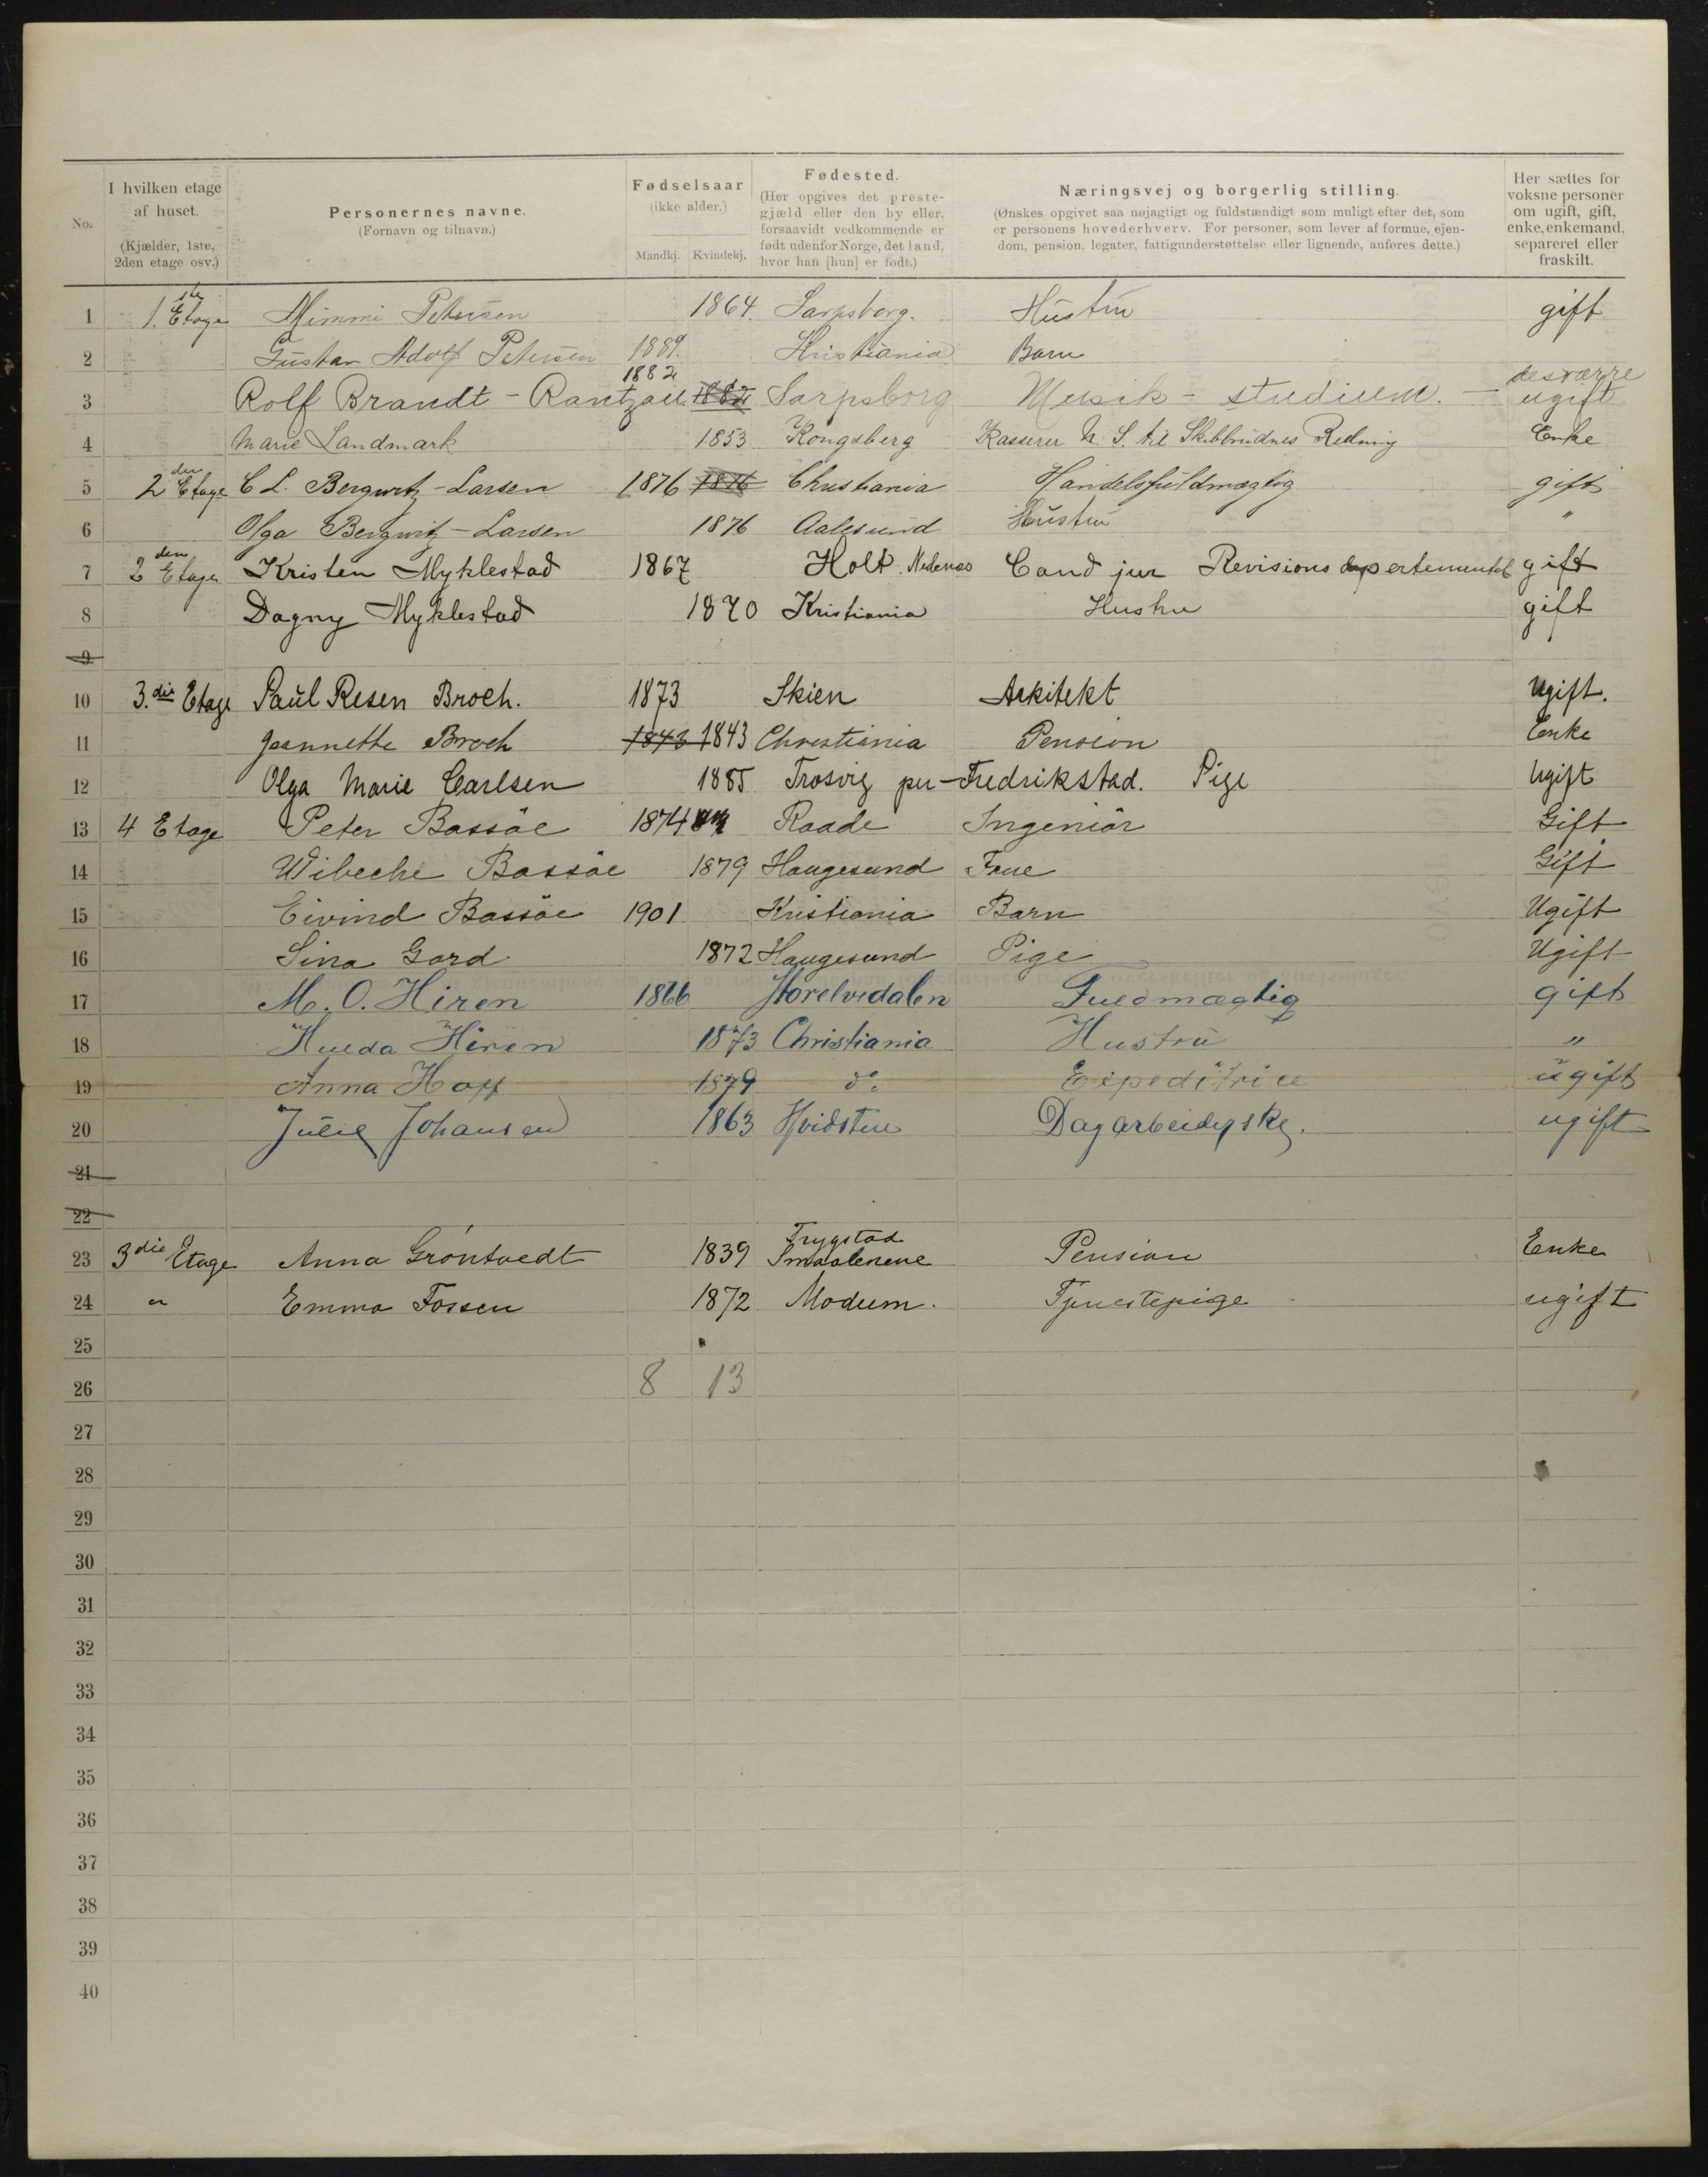 No.
I hvilken etage af huset. (Kjælder, 1ste, 2den etage osv.)
Personernes navne. (Fornavn og tilnavn.)
Fødselsaar (ikke alder.) Mandkj. Kvindekj.
Fødested. (Her opgives det prestegjæld eller den by eller, forsaavidt vedkommende er født udenfor Norge, det land, hvor han [hun] er født.)
Næringsvej og borgerlig stilling. (Ønskes opgivet saa nøjagtigt og fuldstændigt som muligt efter det, som er personens hovederhverv. For personer, som lever af formue, ejendom, pension, legater, fattigunderstøttelse eller lignende, anføres dette.)
Her sættes for voksne personer om ugift, gift, enke, enkemand, separeret eller fraskilt.
1 1.ste Etage Mimmi Petersen 1864. Sarpsborg. Hustru gift
2 Gustav Adolf Petersen 1889. Kristiania Barn
3 Rolf Brandt-Rantzau. 1882 1882 Sarpsborg Musik-studium. - desværre ugift
4 Marie Landmark 1853 Kongsberg Kasserer N. S. til Skibbrudnes Redning Enke
5 2den Etage C L. Bergwitz-Larsen 1876 1876 Christiania Handelsfuldmægtig gift
6 Olga Bergwitz-Larsen 1876 Aalesund Hustru "
7 2den Etage Kristen Myklestad 1867 Holt. Nedenes Cand jur Revisionsdepartementet gift
8 Dagny Myklestad 1870 Kristiania Hustru gift
9
10 3.die Etage Paul Resen Broch. 1873 Skien Arkitekt Ugift.
11 Jeannette Broch 1843 1843 Christiania Pension Enke
12 Olga Marie Carlsen 1885 Trosvig pr-Fredrikstad. Pige Ugift
13 4 Etage Peter Bassöe 1874 Raade Ingeniör Gift
14 Wibecke Bassöe 1879 Haugesund Frue Gift
15 Eivind Bassöe 1901 Kristiania Barn Ugift
16 Sina Gard 1872 Haugesund Pige Ugift
17 M. O. Hiren 1866 Storelvedalen Fuldmægtig gift
18 Hulda Hiren 1873 Christiania Hustru "
19 Anna Hoff 1879 do. Expeditrice ugift
20 Julie Johansen 1863 Hvidsten Dagarbeiderske. ugift
21
22
23 3die Etage Anna Gröntvedt 1839 Trygstad Smaalenene Pension Enke
24 " Emma Fossen 1872 Modum. Tjenestepige ugift
25
26 8 13
27
28
29
30
31
32
33
34
35
36
37
38
39
40